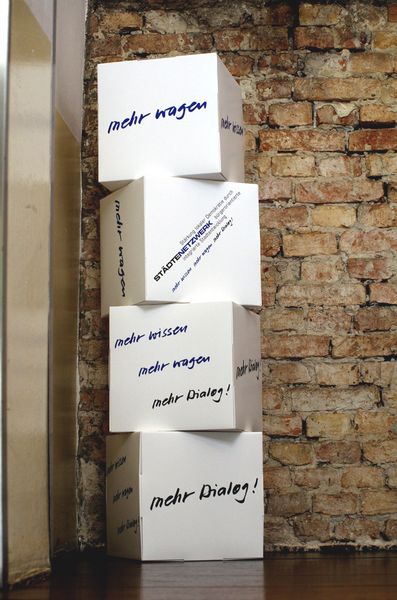 mehr wagen
mehr wissen
mehr wagen
Stärkung lokaler Demokratie durch
STÄDTENETZWERK bürgerorientierte
integrierte Stadtentwicklung
mehr wissen mehr wagen mehr Dialog!
mehr wissen
mehr wagen
mehr Dialog!
mehr Dialog!
mehr wissen
mehr wagen
mehr Dialog!
mehr Dialog!